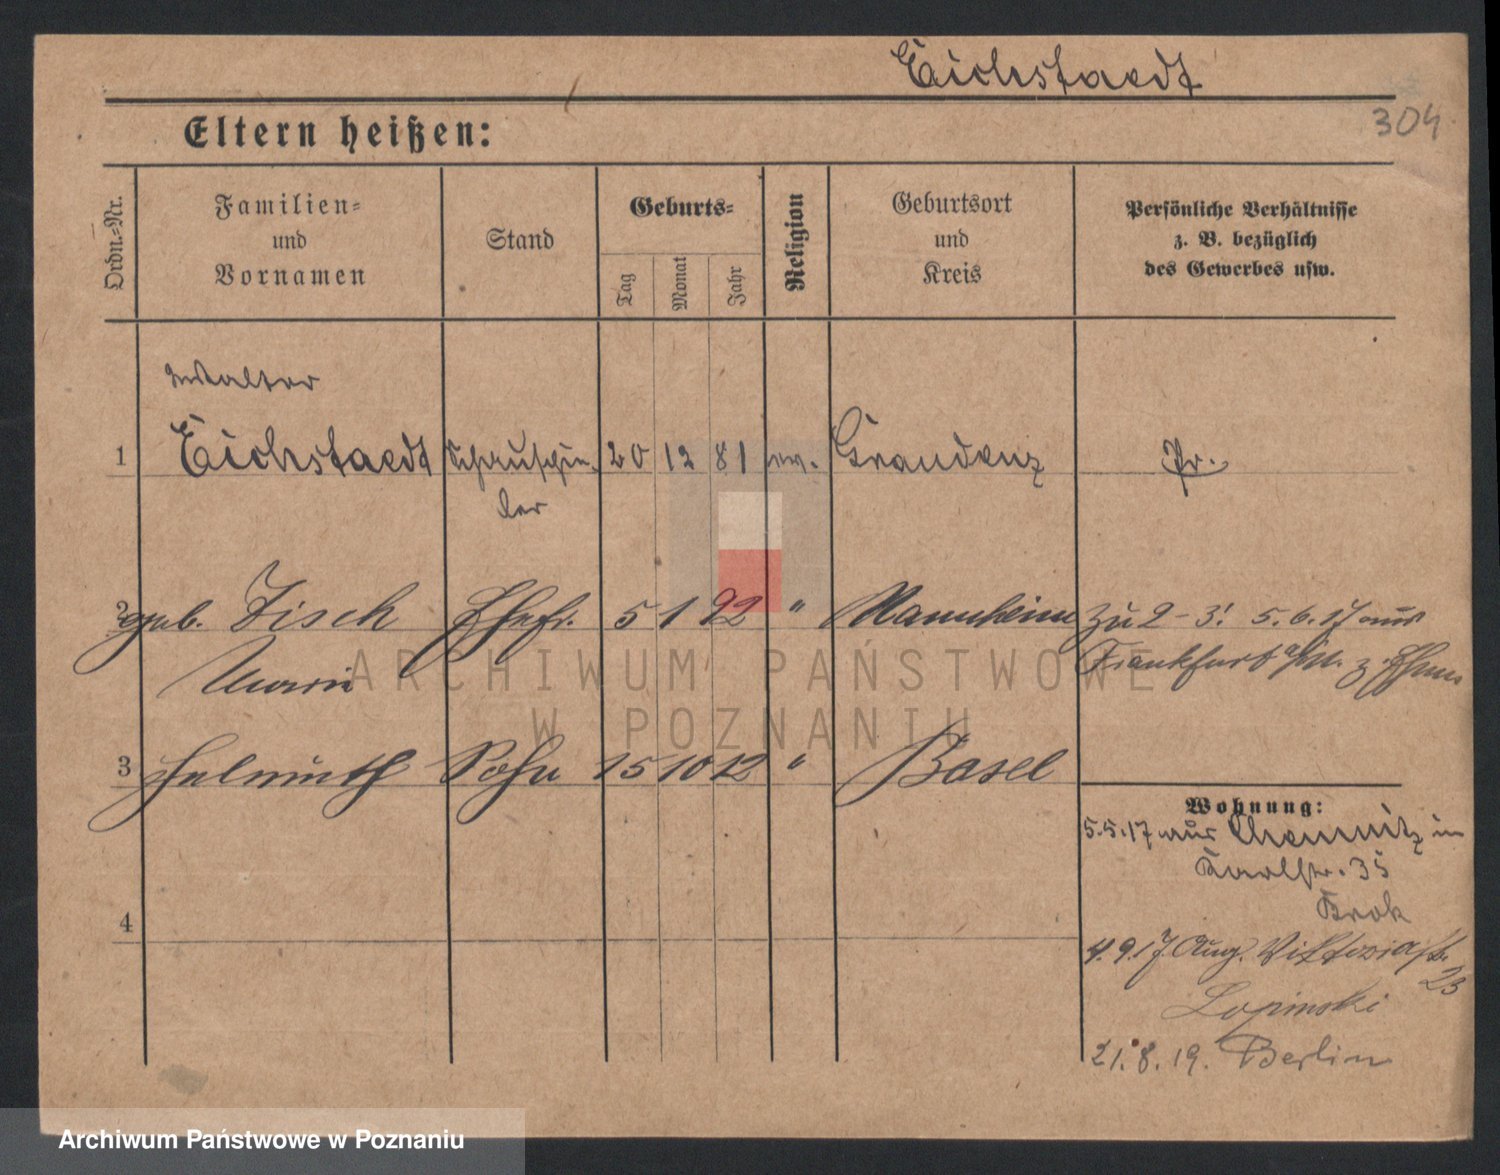 Eichstaedt
304
Eltern heißen:
Ordn.-Nr.
Familien-
und
Vornamen
Stand
Geburts-
Tag
Monat
Jahr
Religion
Geburtsort
und
Kreis
Persönliche Verhältnisse
z. B. bezüglich
des Gewerbes usw.
Walter
1 Eichstaedt Schauspie- 20 12 81 ev. Graudenz Pr.
ler
2 geb. Fisch Ehefr. 5 1 92 " Mannheim zu 2-3! 5.6.17 aus
Maria Frankfurt a/M. z. Ehem.
3 Helmuth Sohn 15 10 12 " Basel
Wohnung:
5.5.17 aus Chemnitz in
Karlstr. 35
Krok
4
4.9.17 Aug. Viktoriastr.
23
Lopinski
21.8.19. Berlin
ARCHIWUM PAŃSTWOWE
W POZNANIU
Archiwum Państwowe w Poznaniu